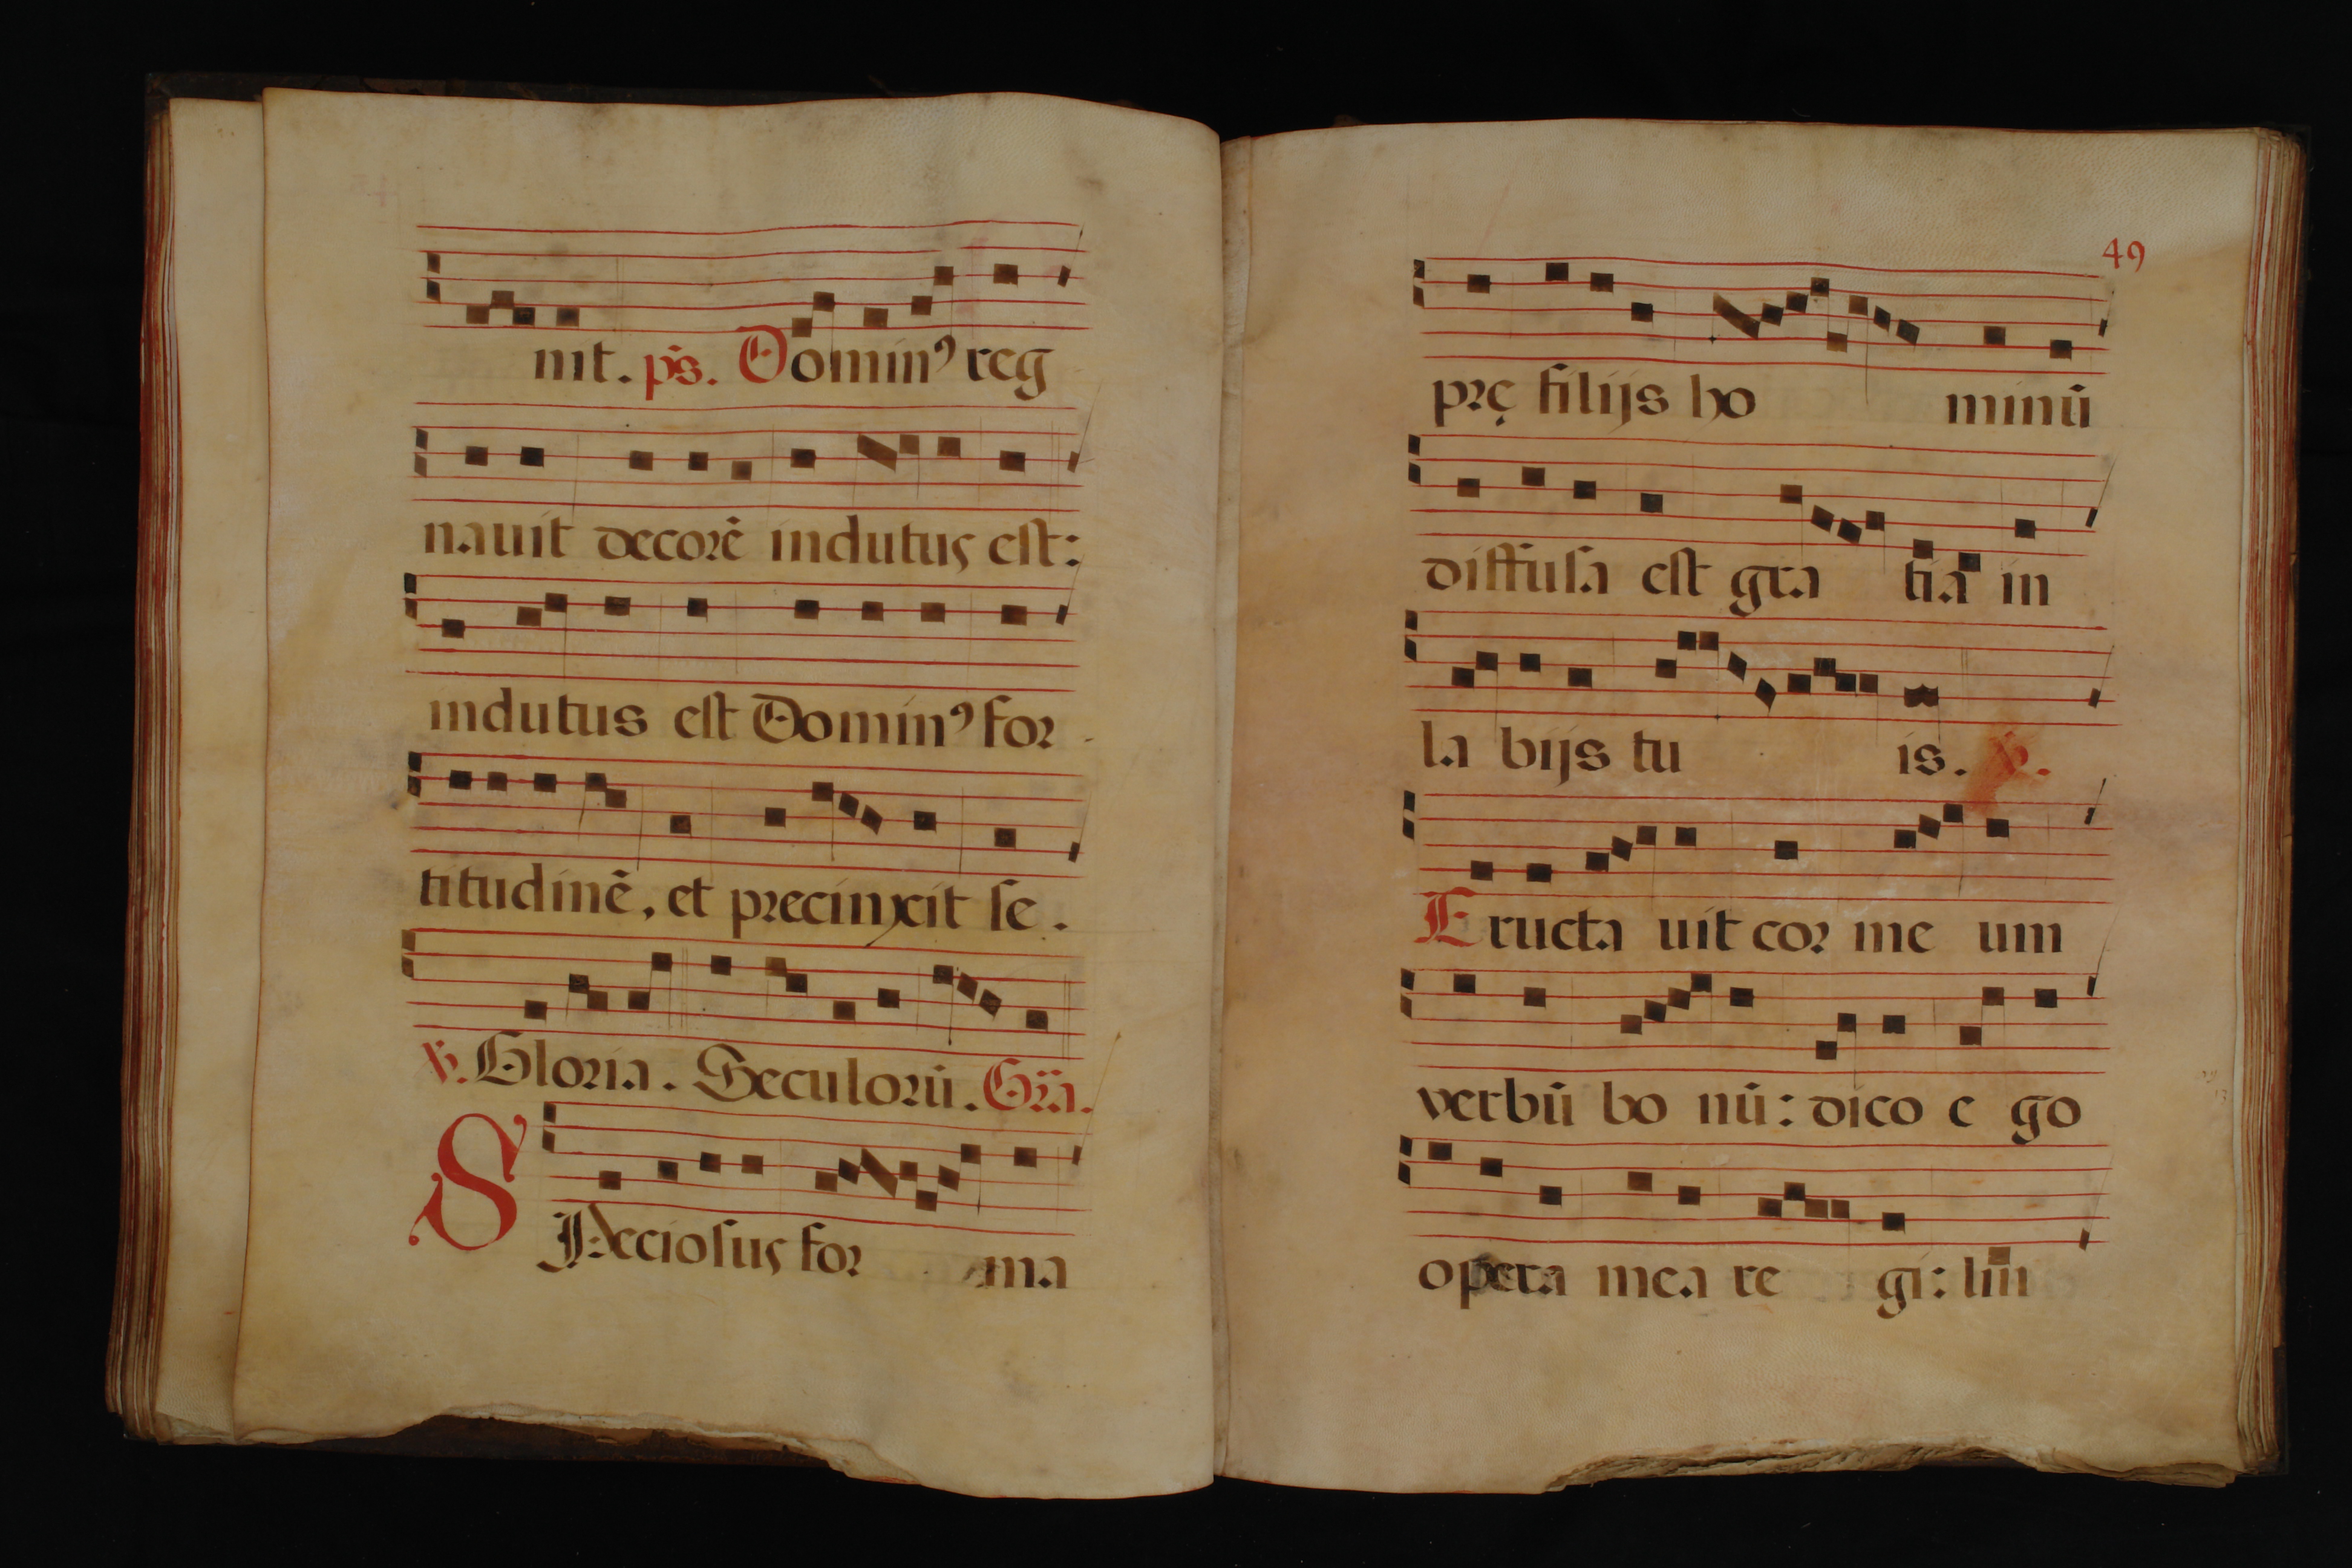 nit. ps. Dominꝰ reg
nauit decorē indutus est:
indutus est Dominꝰ for
titudinē, et precinxit se.
℣. Gloria. Seculorū. Gra.
Speciosus for ma
49
prę filijs ho minū
diffusa est gra tia in
la bijs tu is. ℣.
Eructa uit cor me um
verbū bo nū: dico e go
opera mea re gi: lin